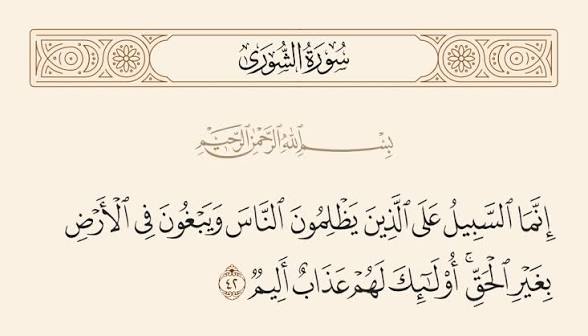 سُورَةُ الشُّورَىٰ
بِسْمِ ٱللَّهِ ٱلرَّحْمَٰنِ ٱلرَّحِيمِ
إِنَّمَا ٱلسَّبِيلُ عَلَى ٱلَّذِينَ يَظْلِمُونَ ٱلنَّاسَ وَيَبْغُونَ فِى ٱلْأَرْضِ
بِغَيْرِ ٱلْحَقِّ ۚ أُو۟لَٰٓئِكَ لَهُمْ عَذَابٌ أَلِيمٌ ٤٢